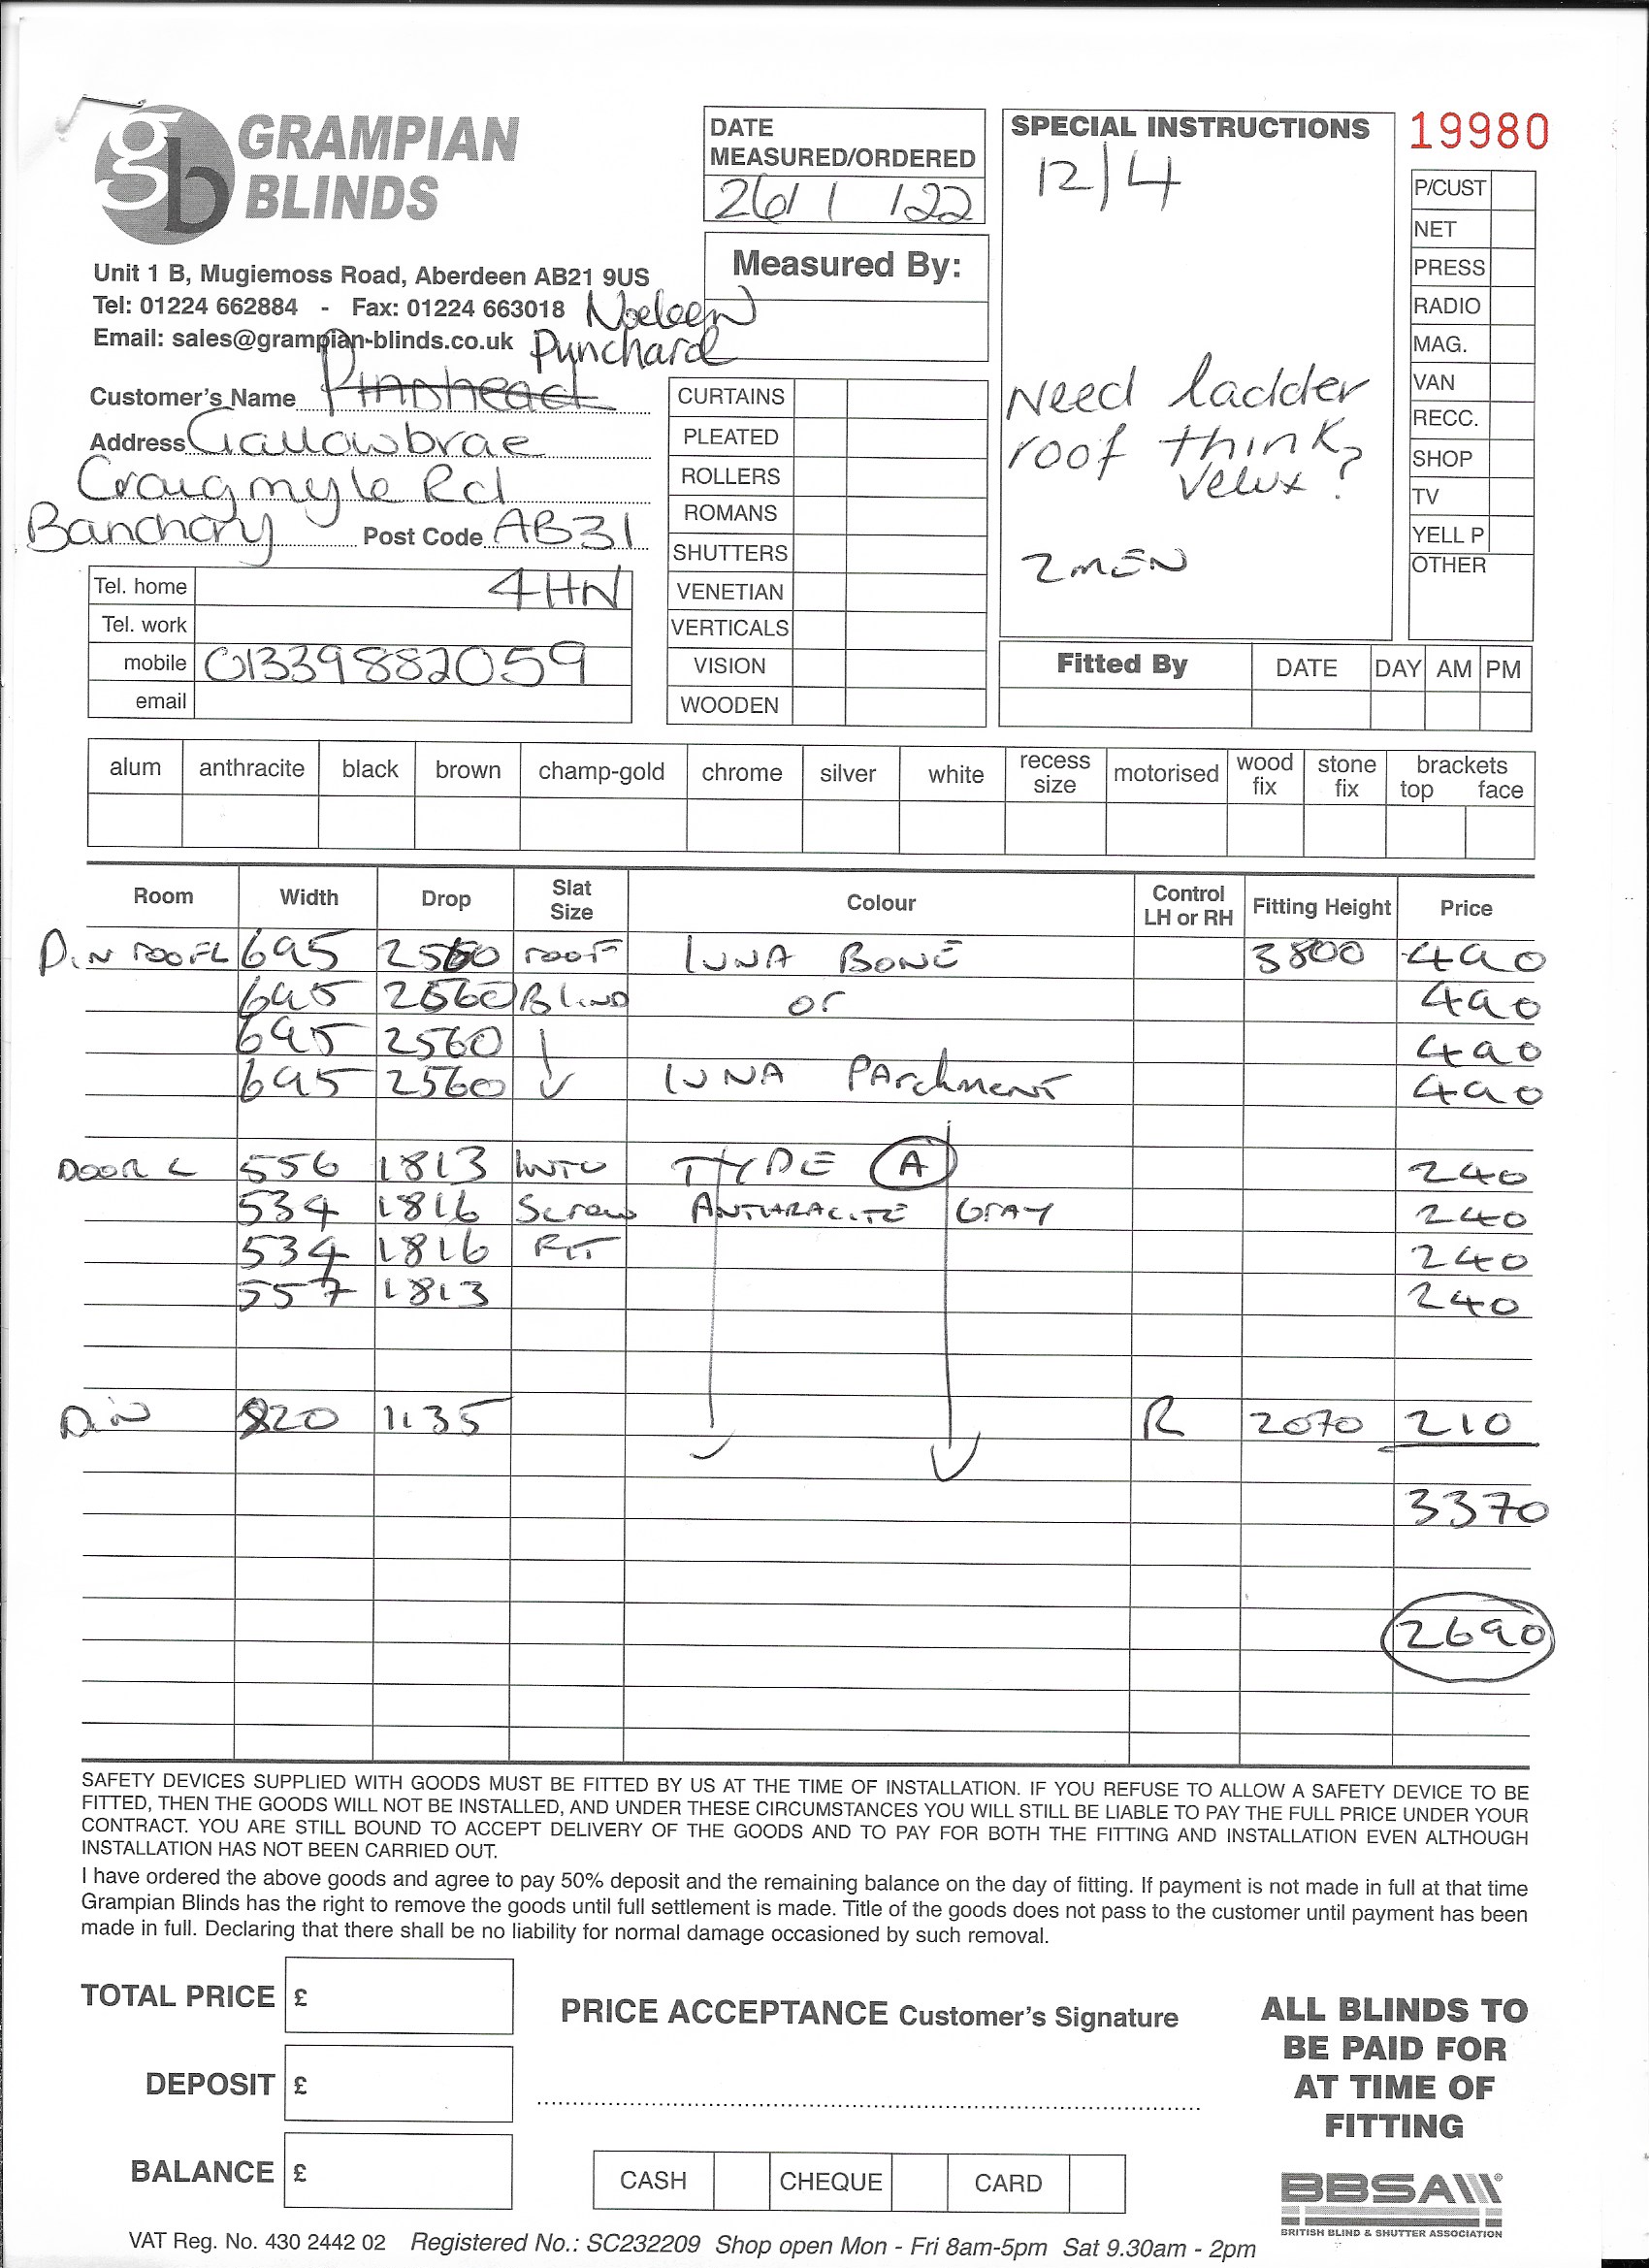 gb GRAMPIAN BLINDS
Unit 1 B, Mugiemoss Road, Aberdeen AB21 9US
Tel: 01224 662884 - Fax: 01224 663018
Email: sales@grampian-blinds.co.uk
Noeleen
Punchard
Customer's Name Pinshead
Address Gallowbrae
Craigmyle Rd
Banchory Post Code AB31
Tel. home 4HN
Tel. work
mobile 01339882059
email
DATE
MEASURED/ORDERED
26/1/22
Measured By:
CURTAINS
PLEATED
ROLLERS
ROMANS
SHUTTERS
VENETIAN
VERTICALS
VISION
WOODEN
SPECIAL INSTRUCTIONS
12/4
Need ladder
roof think
Velux ?
2 MEN
19980
P/CUST
NET
PRESS
RADIO
MAG.
VAN
RECC.
SHOP
TV
YELL P
OTHER
Fitted By DATE DAY AM PM
alum anthracite black brown champ-gold chrome silver white recess size motorised wood fix stone fix brackets top face
Room Width Drop Slat Size Colour Control LH or RH Fitting Height Price
DiN ROOF L 695 2560 ROOF LUNA BONE 3800 490
695 2560 BLIND or 490
695 2560 490
695 2560 LUNA PArchment 490
DOOR L 556 1813 INTU TYPE A 240
534 1816 Screw ANTHRACITE GRAY 240
534 1816 FIT 240
557 1813 240
DiN 820 1135 R 2070 210
3370
2690
SAFETY DEVICES SUPPLIED WITH GOODS MUST BE FITTED BY US AT THE TIME OF INSTALLATION. IF YOU REFUSE TO ALLOW A SAFETY DEVICE TO BE
FITTED, THEN THE GOODS WILL NOT BE INSTALLED, AND UNDER THESE CIRCUMSTANCES YOU WILL STILL BE LIABLE TO PAY THE FULL PRICE UNDER YOUR
CONTRACT. YOU ARE STILL BOUND TO ACCEPT DELIVERY OF THE GOODS AND TO PAY FOR BOTH THE FITTING AND INSTALLATION EVEN ALTHOUGH
INSTALLATION HAS NOT BEEN CARRIED OUT.
I have ordered the above goods and agree to pay 50% deposit and the remaining balance on the day of fitting. If payment is not made in full at that time
Grampian Blinds has the right to remove the goods until full settlement is made. Title of the goods does not pass to the customer until payment has been
made in full. Declaring that there shall be no liability for normal damage occasioned by such removal.
TOTAL PRICE £
DEPOSIT £
BALANCE £
PRICE ACCEPTANCE Customer's Signature
CASH CHEQUE CARD
ALL BLINDS TO
BE PAID FOR
AT TIME OF
FITTING
BBSA
BRITISH BLIND & SHUTTER ASSOCIATION
VAT Reg. No. 430 2442 02 Registered No.: SC232209 Shop open Mon - Fri 8am-5pm Sat 9.30am - 2pm